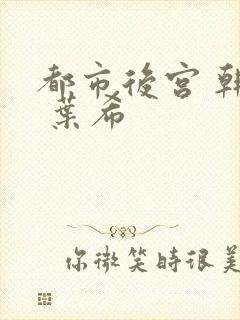 都市後宮 韓
葉希
你微笑時很美